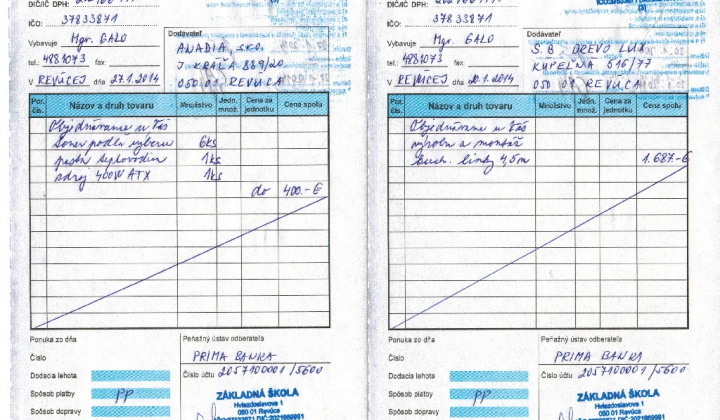 DIČ/IČ DPH:
IČO: 37833871
Vybavuje Mgr. GALO
tel.: 4881073 fax:
V REVÚCEJ dňa 27.1.2014
Dodávateľ
ANADIA, s.r.o.
J. KRÁĽA 889/20
050 01 REVÚCA
Por. čís.
Názov a druh tovaru
Množstvo
Jedn. množ.
Cena za jednotku
Cena spolu
Objednávame u Vás
toner podľa výberu 6ks
pasta teplovodivá 1ks
zdroj 400W ATX 1ks
do 400.-€
Ponuka zo dňa
Číslo
Dodacia lehota
Spôsob platby PP
Spôsob dopravy
Peňažný ústav odberateľa
PRIMA BANKA
Číslo účtu 2057100001/5600
ZÁKLADNÁ ŠKOLA
Hviezdoslavova 1
050 01 Revúca
DIČ/IČ DPH:
IČO: 37833871
Vybavuje Mgr. GALO
tel.: 4881073 fax:
V REVÚCEJ dňa 20.1.2014
Dodávateľ
S.B. DREVO LUX
KÚPEĽNÁ 616/77
050 01 REVÚCA
Por. čís.
Názov a druh tovaru
Množstvo
Jedn. množ.
Cena za jednotku
Cena spolu
Objednávame u Vás
výrobu a montáž
kuch. linky 4,5m 1.687.-€
Ponuka zo dňa
Číslo
Dodacia lehota
Spôsob platby PP
Spôsob dopravy
Peňažný ústav odberateľa
PRIMA BANKA
Číslo účtu 2057100001/5600
ZÁKLADNÁ ŠKOLA
Hviezdoslavova 1
050 01 Revúca